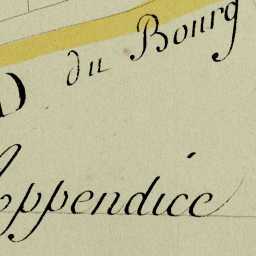 D du Bourg
Appendice